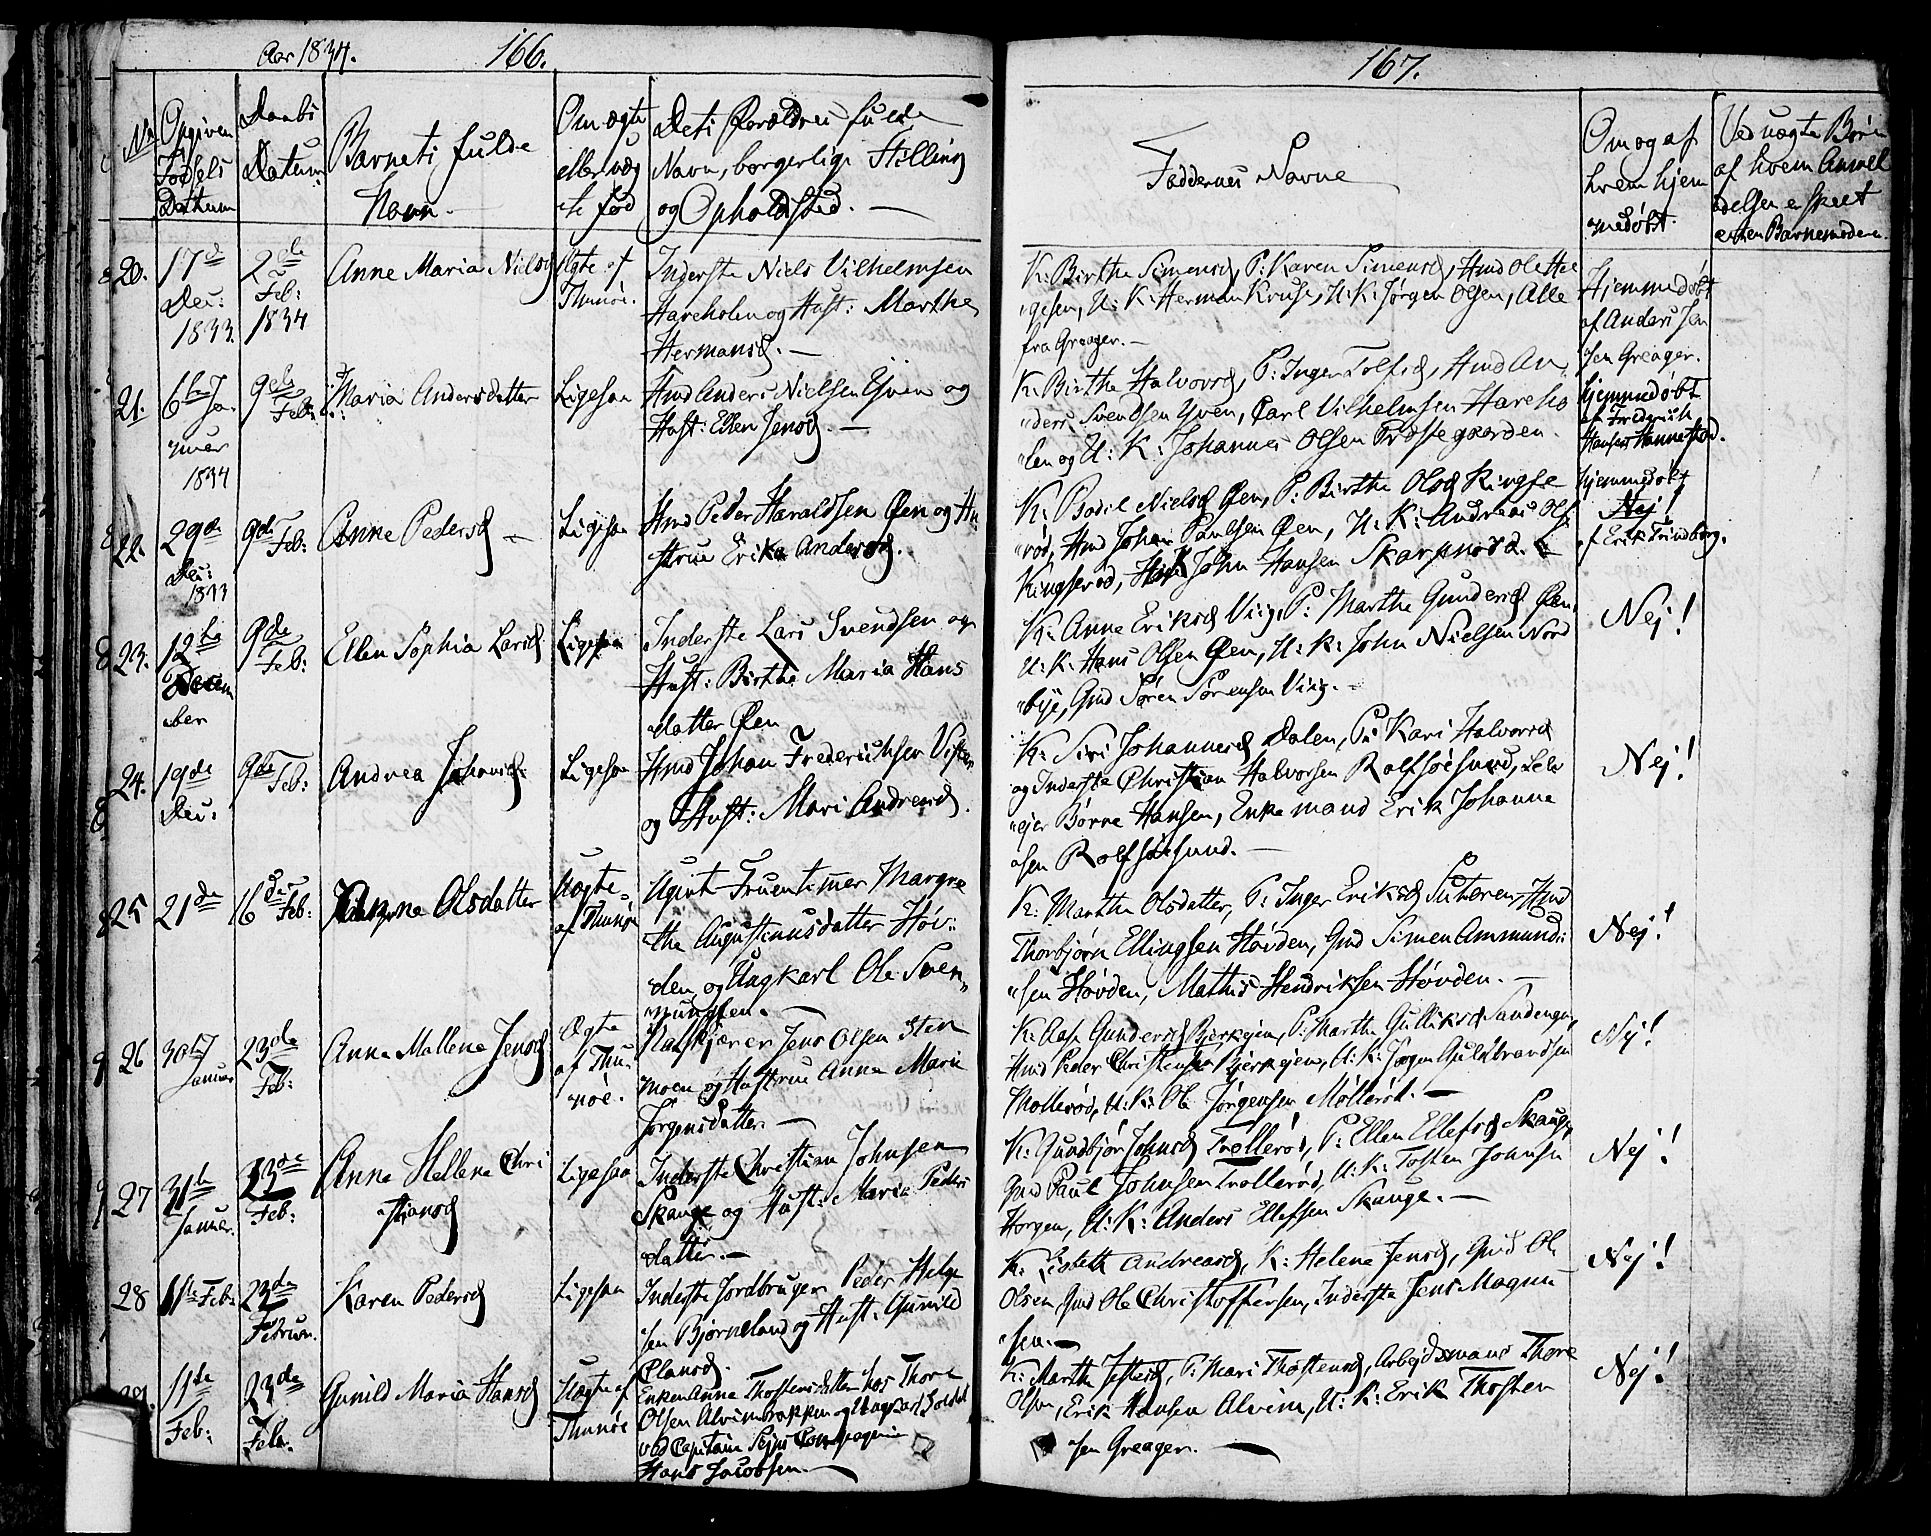 Aar 1834.
166.
No
Opgiven
Fødsels
Datum
Daabs
Datum
Barnets fulde
Navn.
Om ægte
eller uæg
te fød
Dets Forældres fulde
Navn, borgerlige Stilling
og Opholdsted. —
20.
17de
Dec:
1833.
2de
Feb:
1834
Anne Maria Nielsd
Ægte af
Thunøe.
Inderste Niels Vilhelmsen
Hareholen og Hust: Marthe
Hermansd. —
21.
6te Ja-
nuar
1834
9de
Feb:
Maria Andersdatter
Ligesaa
Hmd Anders Nielsen Yven og
Hust: Ellen Jensd. —
22.
29de
Dec:
1833
9de Feb:
Anne Pedersd —
Ligesaa
Hmd Peder Haraldsen Øen og Hu
strue Erika Andersd.
23.
12te
Decem
ber
9de
Feb:
Ellen Sophia Larsd
Ligesaa
Inderste Lars Svendsen og
Hust: Birthe Maria Hans
datter Øen
24.
19de
Dec:
9de Feb:
Andrea Johansd.
Ligesaa
Hmd Johan Frederichsen Visten
og Hust: Mari Andreasd.
25
21de
16de Feb:
Anne Olsdatter
Uægte
af Thunøe
Ugivt Fruentimer Margre
the Augustinusdatter Høv:
den og Ungkarl Ole Sven
mungsen.
26
30te
Januar
23de
Feb:
Anne Mallene Jensd
Ægte
af Thu-
nøe.
Jens Olsen Sten
moen og Hustrue Anne Marie
Jørgensdatter. —
27
31te
Januar.
23de
Feb:
Anne Hellene Chri
stiansd
Ligesaa
Inderste Christian Johnsen
Skauge og Hust: Maria Peders
datter. —
28
11te Feb:
23de
Februar.
Karen Pedersd
Ligesaa
Inderste Jordbruger Peder Helge
sen Bjørneland og Hust: Gunild
Olansd.
11te
Feb:
23de
Feb.
Gunild Maria Hansd
Uægte af
Thunøe
Enken Anne Thostensdatter hos Thore
Olsen Alvimbrakken og Ungkarl Soldat
ved Capitain Sejes Compagnie
Hans Jacobsen. —
167.
Faddernes Navne
Om og af
hvem hjem
medøbt.
Ved uægte Børn
af hvem Anmel
delsen er skeet
enten Barnemoderen
K: Birthe Simensd, P: Karen Simensd, Hmd Ole Hel
gesen, U: K: Herman Kruse, U: K: Jørgen Olsen, Alle
fra Greager. —
Hjemmedøbt
af Anders Jen
sen Greager.
K: Birthe Halvorsd, P: Inger Tolfsd, Hmd An
ders Svendsen Yven, Carl Vilhelmsen Hareho
len og U: K: Johannes Olsen Præstegaarden.
hjemmedøbt
af Frederich
Hansen Hannestad.
K: Bodil Nielsd Øen, P: Birthe Olsd Kingse
rød, Hmd Johan Paulsen Øen, U: K: Andreas Ols
Kingserød, John Hansen Skarpnord.
hjemmedøbt
Nej!
af Erik Trindborg.
K: Anne Eriksd Viig, P: Marthe Gundersd Øen,
U: K: Hans Olsen Øen, U: K: John Nielsen Nord
bye, Gmd Søren Sørensen Viig. —
Nej!
K: Siri Johannesd Dalen, P: Kari Halvorsd
og Inderste Christian Halvorsen Rolfsøesund, Lei
ejer Børre Hansen, Enkemand Erik Johanne
sen Rolfsøesund. —
Nej!
K: Marthe Olsdatter, P: Inger Eriksd Huteren, Hmd
Thorbjørn Ellingsen Høvden, Gmd Simen Ammund:
sen Høvden, Mathis Hendriksen Høvden. —
Nej!
K: Aase Gundersd Bjerkøen, P: Marthe Gulliksd Sandengen,
Hmd Peder Christensen Bjerkøen, U: K: Jørgen Guldbrandsen
Møllerød, U: K: Ole Jørgensen Møllerød. —
Nej!
K: Gunbjør Johnsd Trollerød, P: Ellen Ellefsd Skauge,
Gmd Paul Johnsen Trollerød, U: K: Tosten Johnsen
Horgen, U: K: Anders Ellefsen Skauge. —
Nej!
K: Lisbeth Andreasd, K: Helene Jensd, Gmd Ole
Olsen, Gmd Ole Christoffersen, Inderste Jens Magnu
sen. —
Nej!
K: Marthe Jensd, P: Mari Thostensd, Arbejdsmand Thore
Olsen, Erik Hansen Alvim, U: K: Erik Thosten
sen Greager. —
Nej!